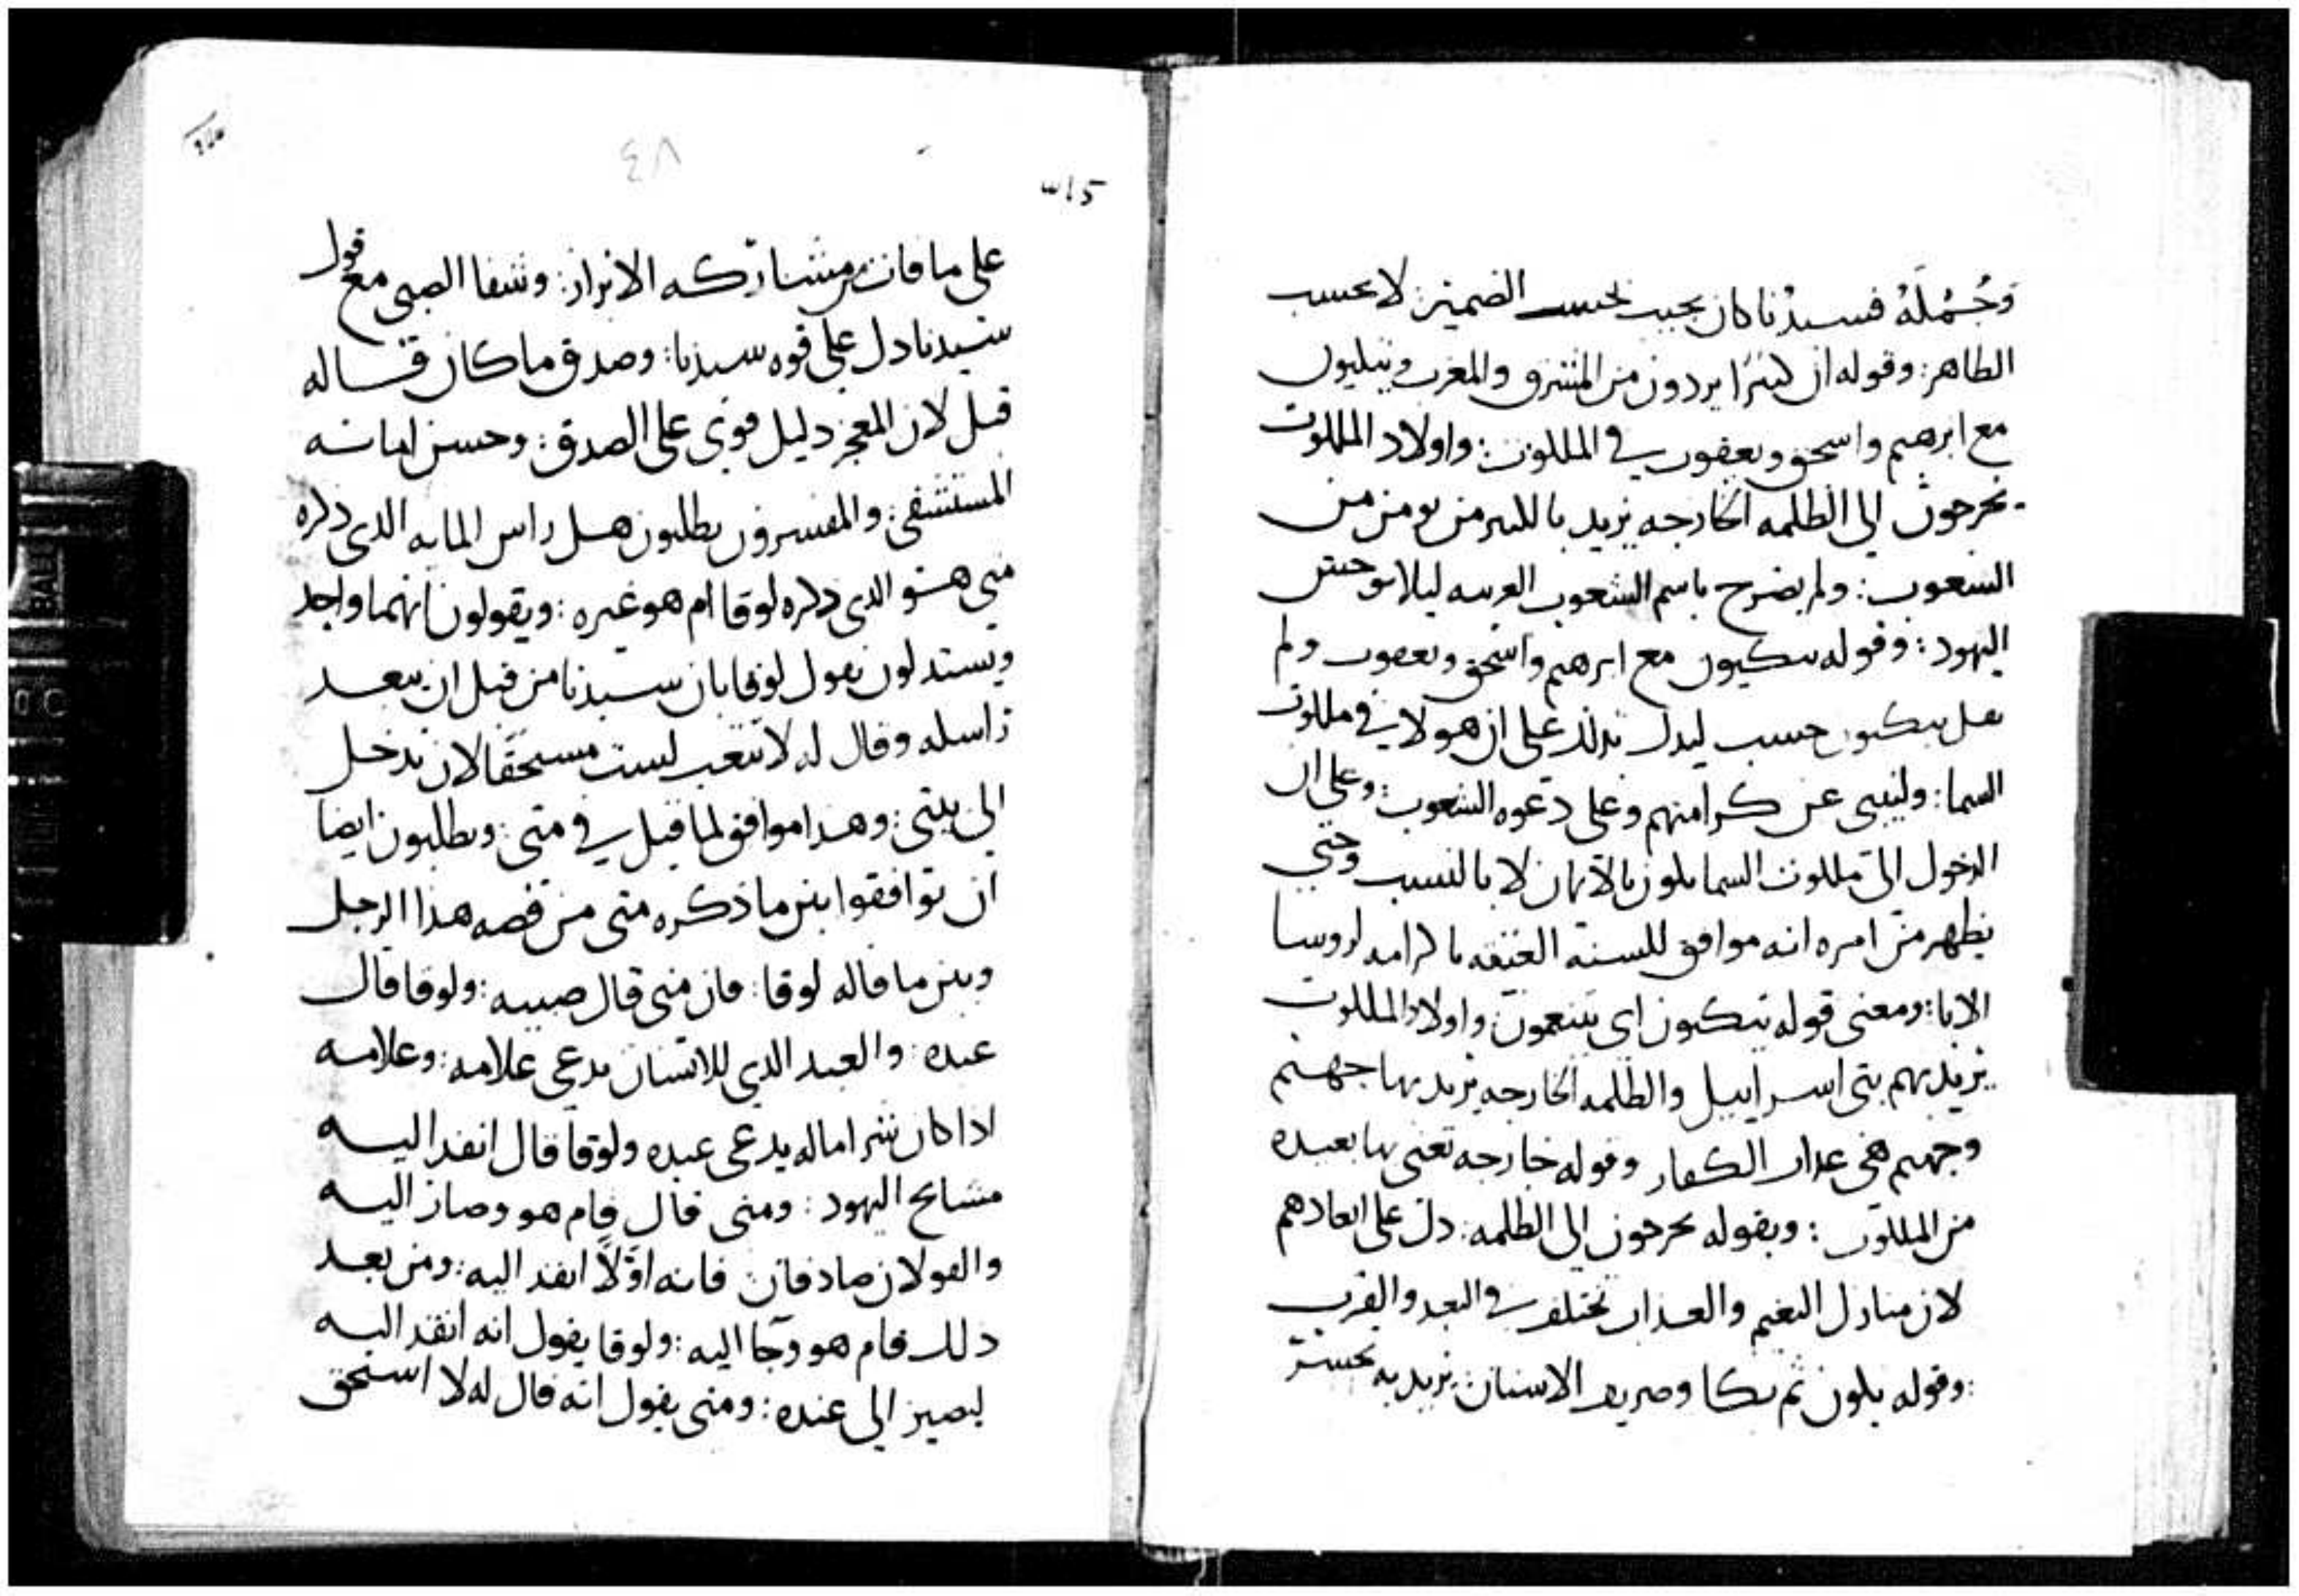 وجُمْلَةُ فسيدنا كان يجيب بحسب الضمير: لا بحسب
الظاهر: وقوله ان كثيرًا يردون من المشرق والمغرب ويتكيون
مع ابرهيم واسحق ويعقوب في الملكوت: واولاد الملكوت
يخرجون الى الظلمه الخارجه يريد بالكثير من يومن من
الشعوب: ولم يصرح باسم الشعوب الغريبه ليلا يوحش
اليهود: وقوله يتكيون مع ابرهيم واسحق ويعقوب ولم
يقل يتكيون حسب ليدل بذلك على ان هولاي في ملكوت
السما: ولينبي عن كرامتهم وعلى دعوه الشعوب: وعلى ان
الدخول الى ملكوت السما يكون بالايمان لا بالنسب وحتي
يظهر من امره انه موافق للسنه العتيقه باكرامه لروسا
الابا: ومعنى قوله يتكيون اى يتنعمون واولاد الملكوت
يريد بهم بني اسراييل والظلمه الخارجه يريد بها جهنم
وجهنم هي عذاب الكفار وقوله خارجه تعني بها بعيده
من الملكوت: وبقوله يخرجون الى الظلمه: دل على ابعادهم
لان منازل النعيم والعذاب تختلف في البعد والقرب
: وقوله يكون ثم بكا وصرير الاسنان: يريد به تحسر
٣١٥
٤٨
على ما فات من مشاركه الابرار: وشفا الصبي مع قول
سيدنا دل على قوه سيدنا: وصدق ما كان قاله
قبل لان المعجز دليل قوى على الصدق: وحسن امانه
المستشفي: والمفسرون يطلبون هل راس المايه الذى ذكره
متى هو الذى ذكره لوقا ام هو غيره: ويقولون انهما واحد
ويستدلون بقول لوقا بان سيدنا من قبل ان يبعد
راسله وقال له لا تتعب لست مستحقا لان تدخل
الى بيتي: وهذا موافق لما قيل في متى: ويطلبون ايضا
ان توافقوا بين ما ذكره متى من قصه هذا الرجل
وبين ما قاله لوقا: فان متى قال صبيه: ولوقا قال
عبده: والعبد الذي للانسان يدعى غلامه: وغلامه
اذا كان شراه ماله يدعى عبده ولوقا قال انفذ اليه
مشايخ اليهود: ومتى قال قام هو وصار اليه
والقولان صادقان فانه اوّلًا انفذ اليه: ومن بعد
ذلك قام هو وجا اليه: ولوقا يقول انه انفذ اليه
ليصير الى عنده: ومتى يقول انه قال له لا استحق